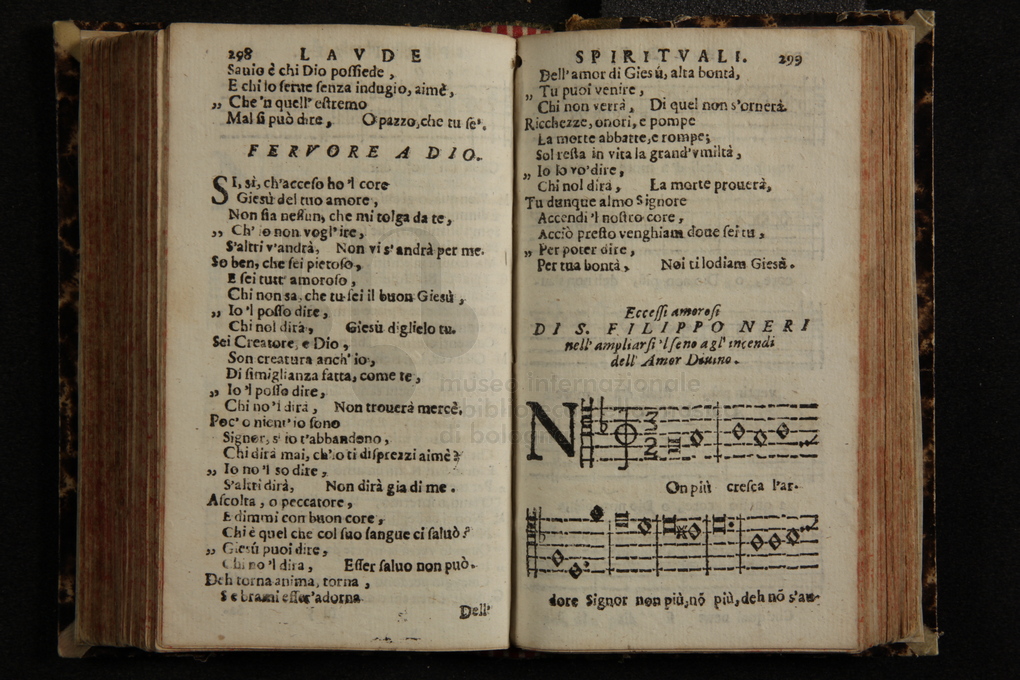 298 LAVDE
Sauio è chi Dio possiede,
E chi lo serue senza indugio, aimè,
„ Che 'n quell' estremo
Mal si può dire, O pazzo, che tu se'.
FERVORE A DIO.
SI, sì, ch'acceso ho 'l core
Giesù del tuo amore,
Non sia nessun, che mi tolga da te,
„ Ch' io non vogl' ire,
S'altri v'andrà, Non vi s' andrà per me.
So ben, che sei pietoso,
E sei tutt' amoroso,
Chi non sa, che tu sei il buon Giesù,
„ Io 'l posso dire,
Chi nol dirà, Giesù diglielo tu.
Sei Creatore, e Dio,
Son creatura anch' io,
Di simiglianza fatta, come te,
„ Io 'l posso dire,
Chi no'l dirà, Non trouerà mercè.
Poc' o nient' io sono
Signor, s' io t'abbandono,
Chi dirà mai, ch'io ti disprezzi aimè?
„ Io no 'l so dire,
S'altri dirà, Non dirà gia di me.
Ascolta, o peccatore,
E dimmi con buon core,
Chi è quel che col suo sangue ci saluò?
„ Giesù puoi dire,
Chi no 'l dira, Esser saluo non può.
Deh torna anima, torna,
Se brami esser' adorna
Dell'
SPIRITVALI. 299
Dell' amor di Giesù, alta bontà,
„ Tu puoi venire,
Chi non verrà, Di quel non s'ornerà.
Ricchezze, onori, e pompe
La morte abbatte, e rompe;
Sol resta in vita la grand' vmiltà,
„ Io lo vo' dire,
Chi nol dirà, La morte prouerà,
Tu dunque almo Signore
Accendi 'l nostro core,
Acciò presto venghiam doue sei tu,
„ Per poter dire,
Per tua bontà, Noi ti lodiam Giesù.
Eccessi amorosi
DI S. FILIPPO NERI
nell' ampliarsi 'l seno a gl' incendi
dell' Amor Diuino.
museo internazionale
biblioteca
di bologna
NOn più cresca l'ar-
dore Signor non più, nõ più, deh nõ s'au-